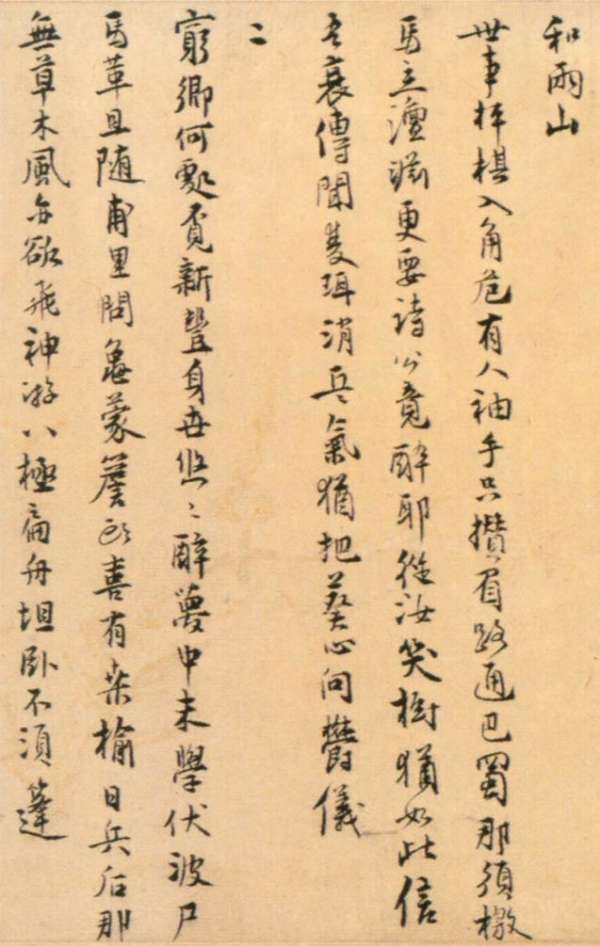 和雨山
世事枰棋入角危有人袖手只攢眉路通巴蜀那須檄
馬立澶淵更要詩公竟醉耶從汝笑樹猶如此信
吾衰傳聞雙珥消兵氣猶把葵心向鬱儀
二
窮鄉何處覓新豐身世悠〻醉夢中未學伏波尸
馬革且随甫里問龜蒙簷頭喜有桑榆日兵后那
無草木風亦欲飛神游八極扁舟坦卧不須篷